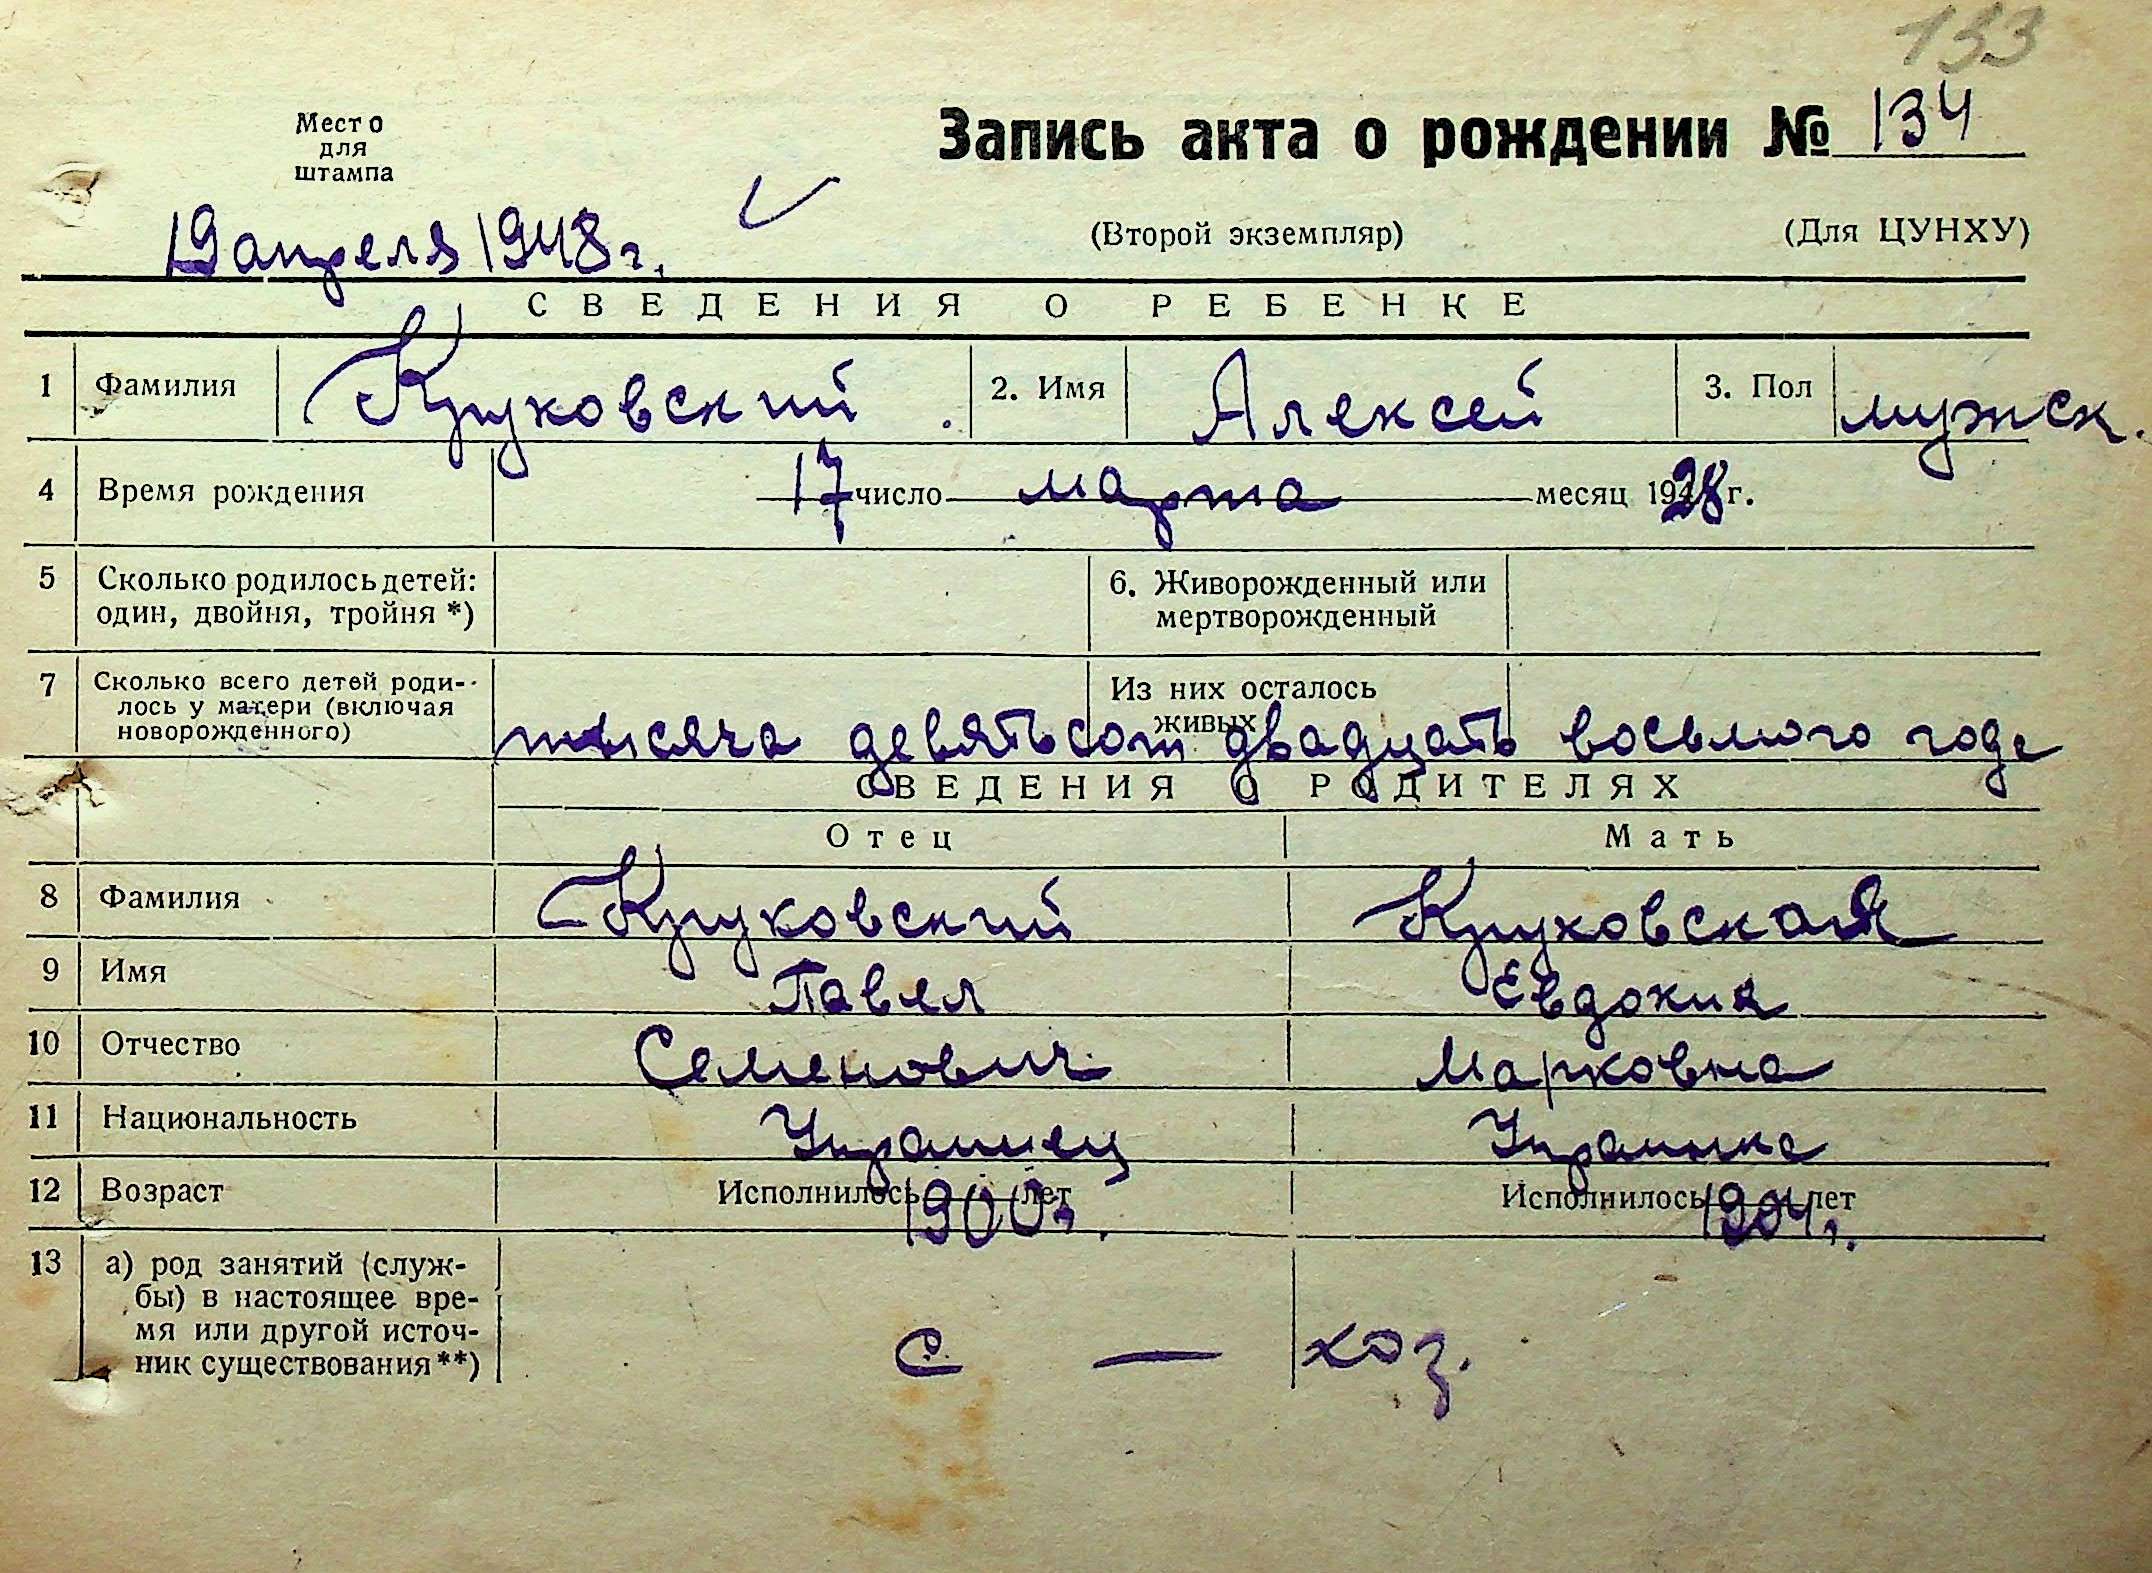 133
Место
для
штампа
Запись акта о рождении № 134
19 апреля 1948 г.
(Второй экземпляр) (Для ЦУНХУ)
СВЕДЕНИЯ О РЕБЕНКЕ
1 Фамилия Круковский. 2. Имя Алексей 3. Пол мужск.
4 Время рождения 17 число марта месяц 1928 г.
5 Сколько родилось детей: 6. Живорожденный или
один, двойня, тройня *) мертворожденный
7 Сколько всего детей роди- Из них осталось
лось у матери (включая живых
новорожденного)
тысяча девятьсот двадцать восьмого года
СВЕДЕНИЯ О РОДИТЕЛЯХ
Отец Мать
8 Фамилия Круковский Круковская
9 Имя Павел Евдокия
10 Отчество Семенович Марковна
11 Национальность Украинец Украинка
12 Возраст Исполнилось 1900 г. лет Исполнилось 1904 г. лет
13 а) род занятий (служ-
бы) в настоящее вре-
мя или другой источ-
ник существования**) с — хоз.